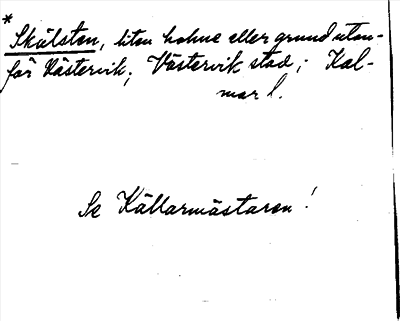 * Skälsten, liten holme eller grund utan-
för Västervik; Västervik stad; Kal-
mar l.
Se Källarmästaren!